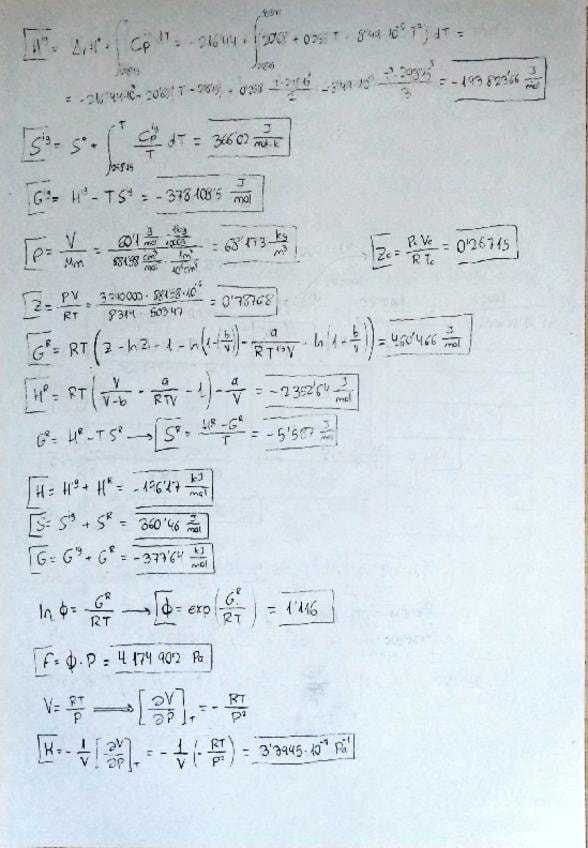 H^ig = Δ_f H° + ∫ Cp^ig dT = -216'44 + ∫ (20'69 + 0'258 T - 8'49·10^-5 T²) dT =
= -216'44·10³ + 20'69 (T - 298'15) + 0'258 (T² - 298'15²)/2 - 8'49·10^-5 (T³ - 298'15³)/3 = -193 823'66 J/mol
S^ig = S° + ∫_298'15^T Cp^ig/T dT = 366'02 J/mol·K
G^ig = H^ig - T S^ig = -378 108'5 J/mol
ρ = V/Mm = = 68'173 kg/m³
Zc = Pc Vc / R Tc = 0'26715
Z = PV/RT = = 0'78768
G^R = RT (Z - ln Z - 1 - ln(1 - (b/V)) - a/(RT^1'5 V) · ln(1 - b/V)) = 460'466 J/mol
H^R = RT (V/(V-b) - a/(RTV) - 1) - a/V = -2352'64 J/mol
G^R = H^R - T S^R → S^R = (H^R - G^R)/T = -5'587 J/mol
H = H^ig + H^R = -196'17 kJ/mol
S = S^ig + S^R = 360'46 J/mol
G = G^ig + G^R = -377'64 kJ/mol
ln φ = -G^R/RT → φ = exp(-G^R/RT) = 1'116
F = φ · P = 4 174 902 Pa
V = RT/P ⟹ [∂V/∂P]_T = -RT/P²
K = -1/V [∂V/∂P]_T = -1/V (-RT/P²) = Pa^-1